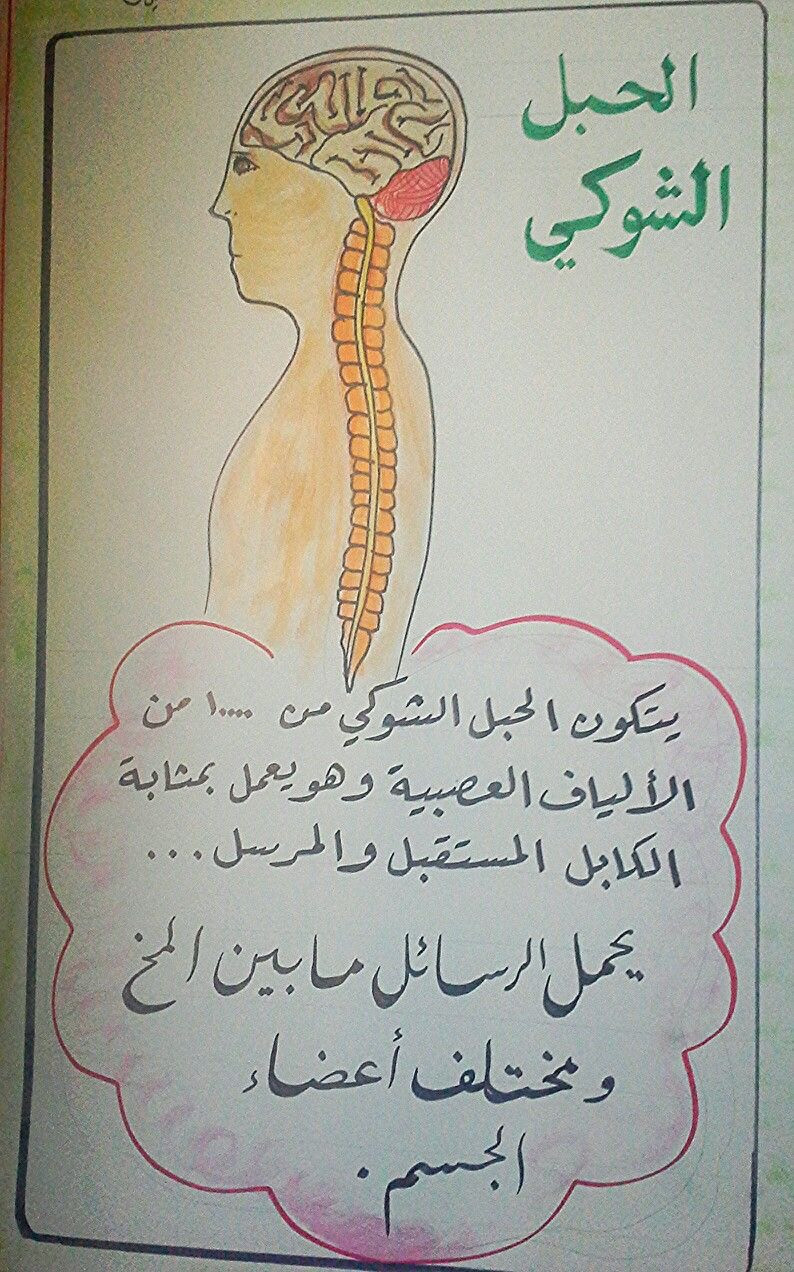 الحبل
الشوكي
يتكون الحبل الشوكي من ١٠٠٠٠ من
الألياف العصبية وهو يعمل بمثابة
الكابل المستقبل والمرسل...
يحمل الرسائل ما بين المخ
ومختلف أعضاء
الجسم.